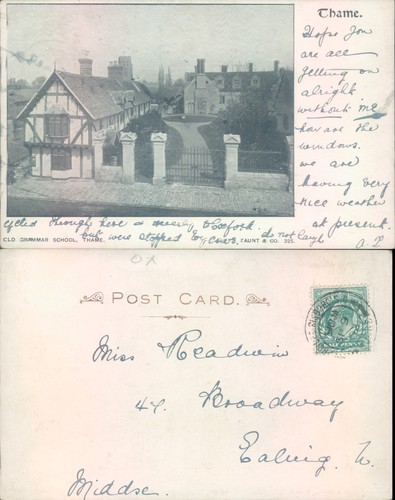 Thame.
Hope you
are all
getting on
alright
without me
how are the
windows.
we are
having very
nice weather
at present.
cycled through here & nearly Oxford.
but were stopped by cows. do not laugh
OLD GRAMMAR SCHOOL, THAME. TAUNT & CO. 325.
OX
POST CARD.
Miss Readwin
44. Broadway
Ealing. W.
Middsx.
HALF PENNY